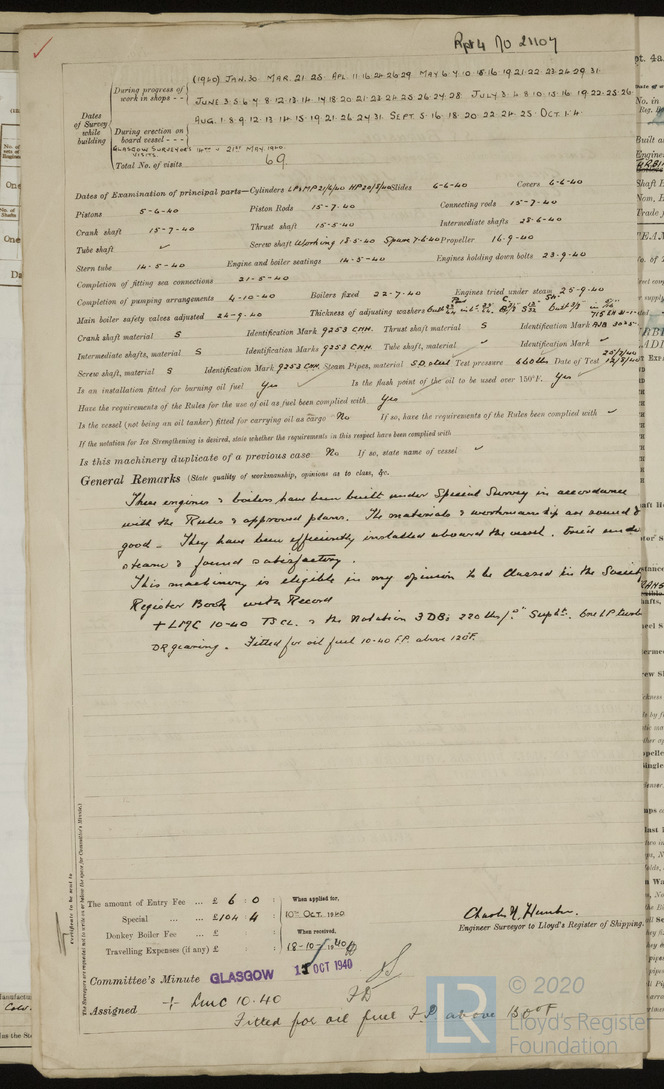 Rpt 4 No 21107
During progress of work in shops - - -
(1940) JAN.30. MAR.21.25. APL.11.16.24.26.29. MAY 6.7.10.15.16.19.21.22.23.24.29.31.
JUNE 3.5.6.7.8.12.13.14.17.18.20.21.23.24.25.26.27.28. JULY 3.4.8.10.15.16.19.22.25.26
Dates of Survey while building
During erection on board vessel - - -
AUG.1.8.9.12.13.14.15.19.21.26.27.31. SEPT.5.16.18.20.22.24.25. OCT.1.4.
GLASGOW SURVEYOR'S VISITS. 21st MAY 1940
Total No. of visits 69
Dates of Examination of principal parts—Cylinders LP & MP 21/6/40 HP 20/5/40 Slides 6-6-40 Covers 6-6-40
Pistons 5-6-40 Piston Rods 15-7-40 Connecting rods 15-7-40
Crank shaft 15-7-40 Thrust shaft 15-5-40 Intermediate shafts 25-6-40
Tube shaft ✓ Screw shaft Working 15-5-40 Spare 7-6-40 Propeller 16-9-40
Stern tube 14-5-40 Engine and boiler seatings 14-5-40 Engines holding down bolts 23-9-40
Completion of fitting sea connections 21-5-40
Completion of pumping arrangements 4-10-40 Boilers fixed 22-7-40 Engines tried under steam 25-9-40
Main boiler safety valves adjusted 24-9-40 Thickness of adjusting washers
Crank shaft material S Identification Mark 9253 CNH. Thrust shaft material S Identification Mark
Intermediate shafts, material S Identification Marks 9253 CNH. Tube shaft, material ✓ Identification Mark ✓
Screw shaft, material S Identification Mark 9253 CNH. Steam Pipes, material S.D. steel Test pressure 660 lbs Date of Test
Is an installation fitted for burning oil fuel Yes Is the flash point of the oil to be used over 150°F. Yes
Have the requirements of the Rules for the use of oil as fuel been complied with Yes
Is the vessel (not being an oil tanker) fitted for carrying oil as cargo No If so, have the requirements of the Rules been complied with ✓
If the notation for Ice Strengthening is desired, state whether the requirements in this respect have been complied with
Is this machinery duplicate of a previous case No If so, state name of vessel ✓
General Remarks (State quality of workmanship, opinions as to class, &c.
These engines & boilers have been built under Special Survey in accordance
with the Rules & approved plans. The materials & workmanship are sound &
good. They have been efficiently installed aboard the vessel, tried under
steam & found satisfactory.
This machinery is eligible in my opinion to be Classed in the Society
Register Book with Record
+ LMC 10-40 TS CL. & the Notation 3 DB: 220 lbs/□" Supht. One LP turb
DR gearing. Fitted for oil fuel 10-40 F.P. above 150°F.
The amount of Entry Fee ... £ 6 : 0 : When applied for,
Special ... ... £104 : 4 : 10TH OCT. 1940
Donkey Boiler Fee ... £ : : When received,
Travelling Expenses (if any) £ : : 18-10-1940
Engineer Surveyor to Lloyd's Register of Shipping.
Committee's Minute GLASGOW 15 OCT 1940
Assigned + LMC 10.40
Fitted for oil fuel F.P. above 150°F
© 2020
Lloyd's Register
Foundation